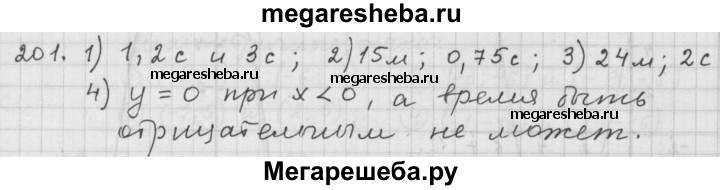 megaresheba.ru
201. 1) 1,2 с и 3 с; 2) 15 м; 0,75 с; 3) 24 м; 2 с
megaresheba.ru megaresheba.ru
4) y = 0 при x < 0, а время быть
megaresheba.ru megaresheba.ru
отрицательным не может.
Мегарешеба.ру